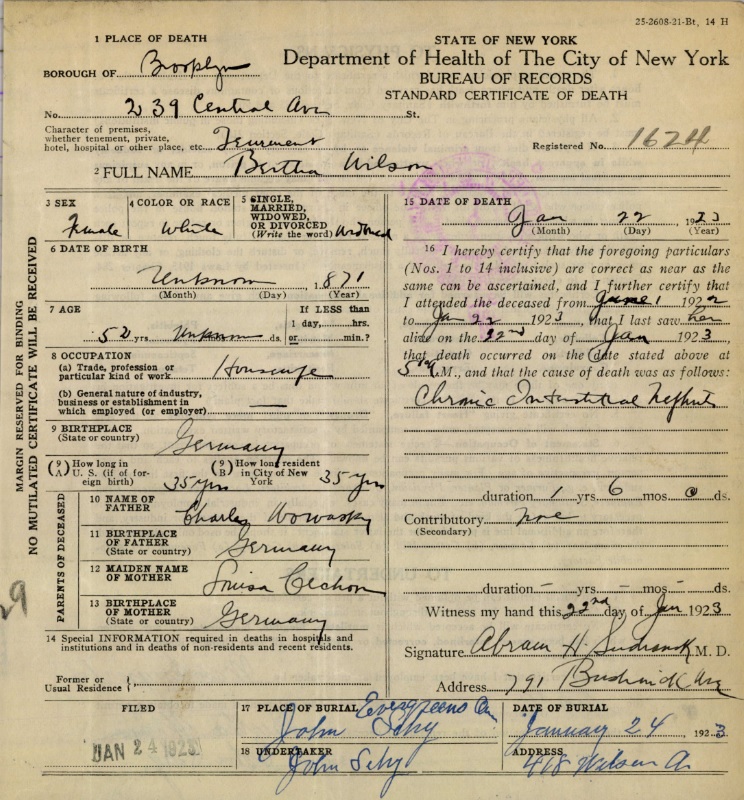 25-2608-21-Bt, 14 H
1 PLACE OF DEATH
STATE OF NEW YORK
BOROUGH OF Brooklyn
Department of Health of The City of New York
BUREAU OF RECORDS
STANDARD CERTIFICATE OF DEATH
No. 239 Central Ave St.
Character of premises,
whether tenement, private,
hotel, hospital or other place, etc. Tenement
Registered No. 1624
2 FULL NAME Bertha Wilson
3 SEX Female
4 COLOR OR RACE White
5 SINGLE,
MARRIED,
WIDOWED,
OR DIVORCED
(Write the word) Widowed
6 DATE OF BIRTH
Unknown, 1871
(Month) (Day) (Year)
7 AGE
52 yrs. Unknown ds.
If LESS than
1 day, hrs.
or min.?
8 OCCUPATION
(a) Trade, profession or
particular kind of work Housewife
(b) General nature of industry,
business or establishment in
which employed (or employer) —
9 BIRTHPLACE
(State or country) Germany
(9 A) How long in
U. S. (if of for-
eign birth) 35 yrs
(9 B) How long resident
in City of New
York 35 yrs
PARENTS OF DECEASED
10 NAME OF
FATHER Charles
11 BIRTHPLACE
OF FATHER
(State or country) Germany
12 MAIDEN NAME
OF MOTHER Louisa
13 BIRTHPLACE
OF MOTHER
(State or country) Germany
14 Special INFORMATION required in deaths in hospitals and
institutions and in deaths of non-residents and recent residents.
Former or
Usual Residence
MARGIN RESERVED FOR BINDING
NO MUTILATED CERTIFICATE WILL BE RECEIVED
15 DATE OF DEATH
Jan 22 1923
(Month) (Day) (Year)
16 I hereby certify that the foregoing particulars
(Nos. 1 to 14 inclusive) are correct as near as the
same can be ascertained, and I further certify that
I attended the deceased from June 1 1922
to Jan 22 1923, that I last saw her
alive on the 22nd day of Jan 1923,
that death occurred on the date stated above at
5 M., and that the cause of death was as follows:
Chronic Interstitial Nephritis
duration 1 yrs 6 mos 0 ds.
Contributory none
(Secondary)
duration - yrs - mos - ds.
Witness my hand this 22nd day of Jan 1923
Signature Abram H. M. D.
Address 791 Bushwick Ave
FILED
JAN 24 1923
17 PLACE OF BURIAL Evergreens Cem
John
DATE OF BURIAL
January 24 1923
18 UNDERTAKER
John
ADDRESS
418 Wilson A.